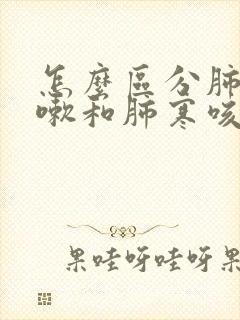 怎麼區分肺
嗽和肺寒咳
果哇呀哇呀果